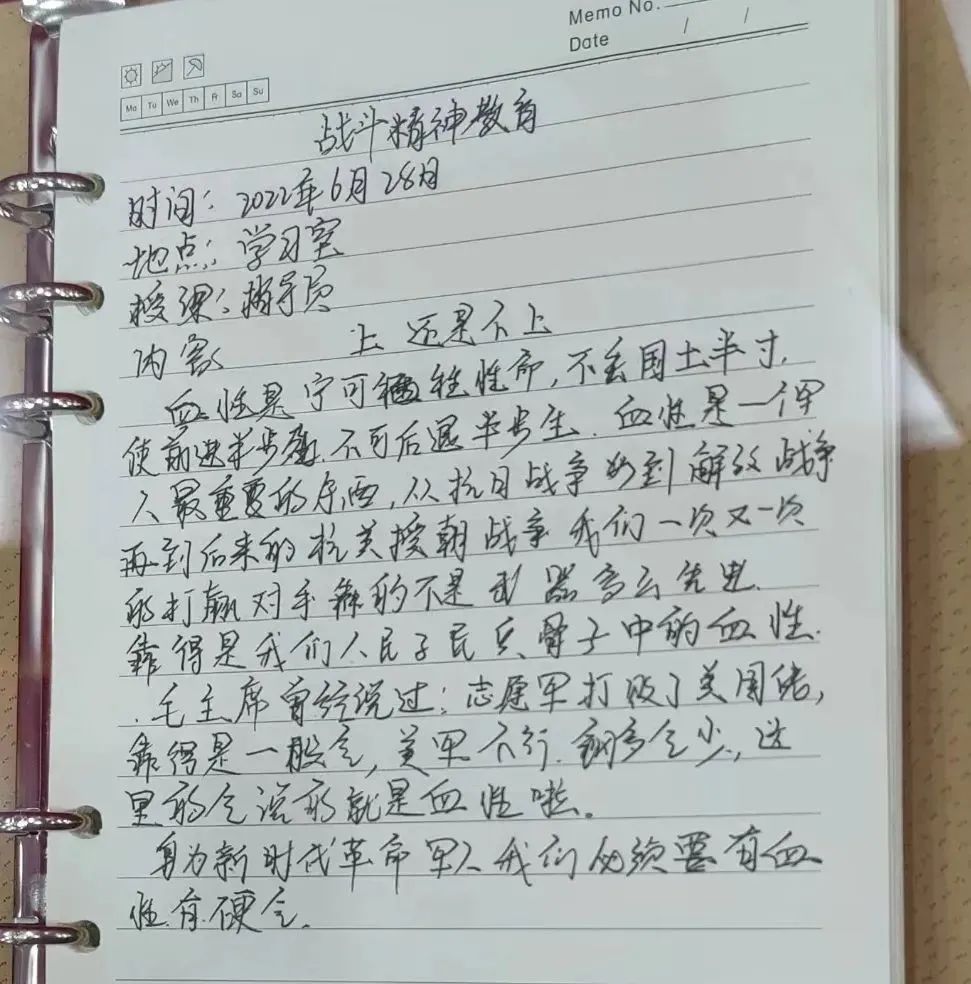 Memo No.
Date / /
Mo Tu We Th Fr Sa Su
战斗精神教育
时间：2022年6月28日
地点：学习室
授课：指导员
内容 上 还是不上
血性是宁可牺牲性命，不丢国土半寸，
使前进半步死，不可后退半步生．血性是一个军
人最重要的东西，从抗日战争 到解放战争
再到后来的抗美援朝战争 我们一次又一次
的打赢对手靠的不是武器多么先进．
靠得是我们人民子民兵骨子中的血性．
毛主席曾经说过：志愿军打败了美国佬，
靠得是一股气，美军不行．钢多气少，这
里的气说的就是血性啦。
身为新时代革命军人我们必须要有血
性有硬气．